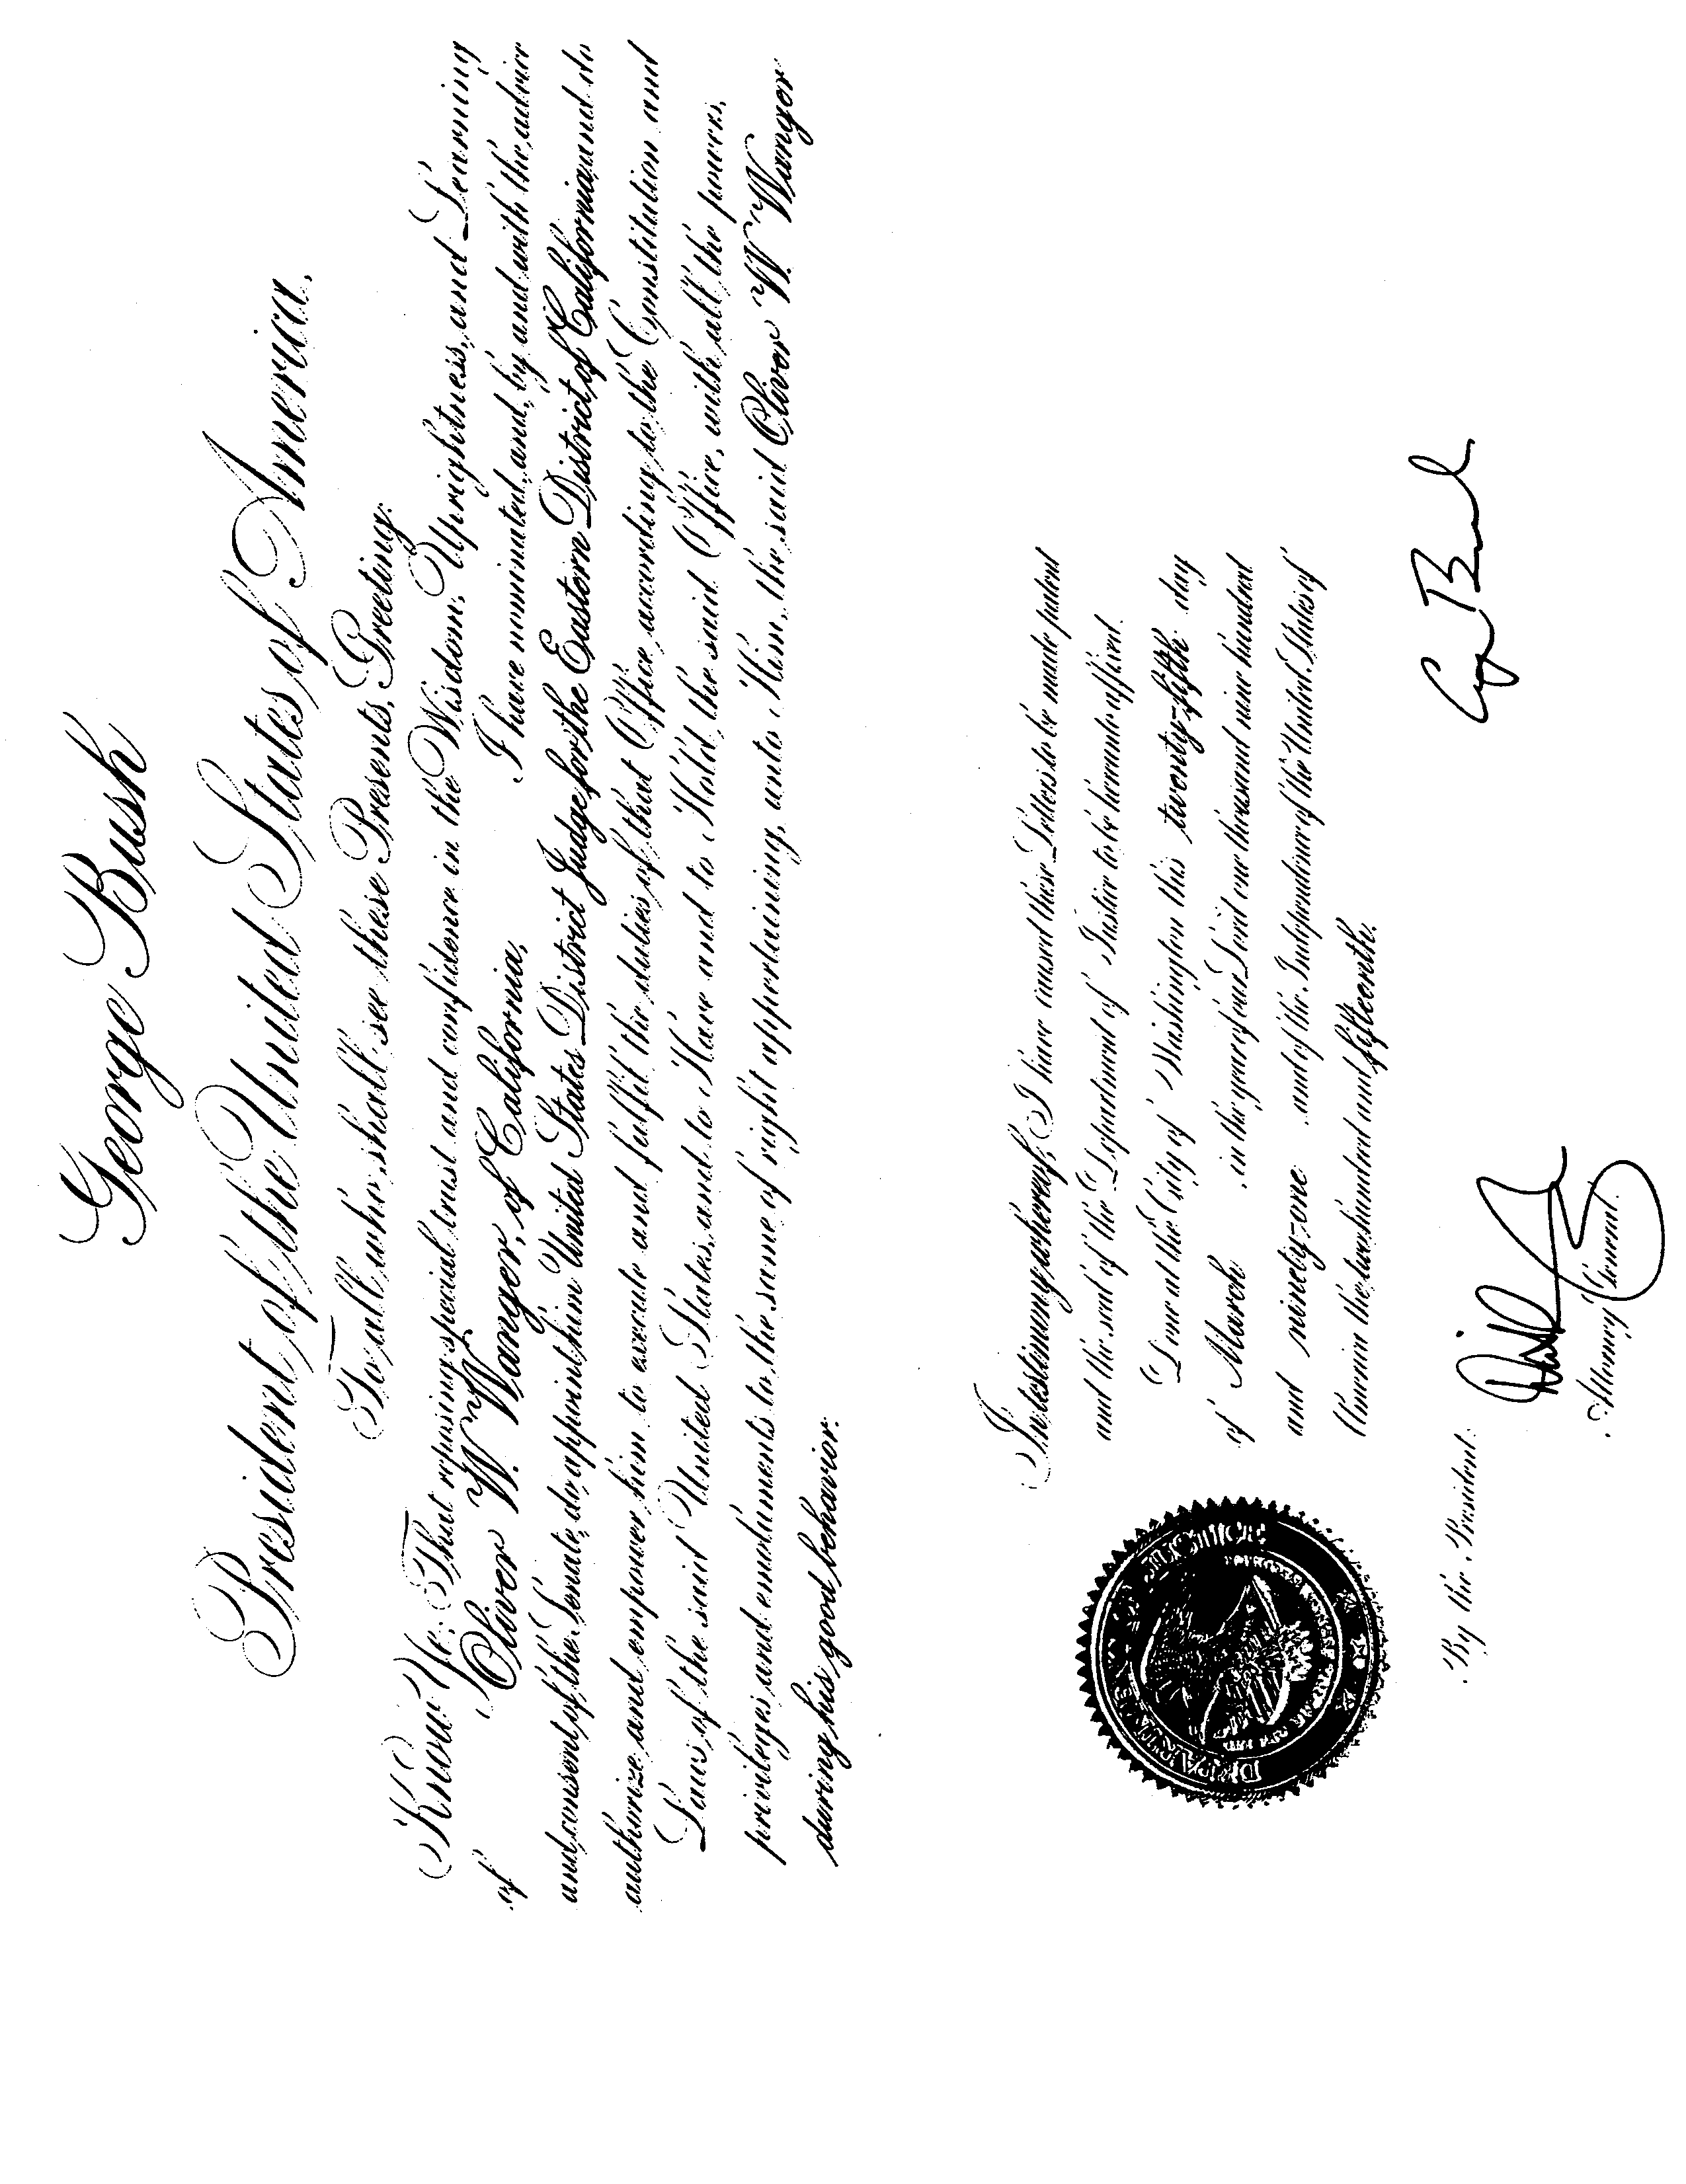 George Bush
President of the United States of America,
To all who shall see these Presents, Greeting:
Know Ye; That reposing special trust and confidence in the Wisdom, Uprightness, and Learning
of Oliver W. Wanger, of California, I have nominated, and, by and with the advice
and consent of the Senate, do appoint him United States District Judge for the Eastern District of California and do
authorize and empower him to execute and fulfil the duties of that Office according to the Constitution and
Laws of the said United States, and to Have and to Hold the said Office, with all the powers,
privileges and emoluments to the same of right appertaining, unto Him, the said Oliver W. Wanger
during his good behavior.
In testimony whereof, I have caused these Letters to be made patent
and the seal of the Department of Justice to be hereunto affixed.
Done at the City of Washington this twenty-fifth day
of March in the year of our Lord one thousand nine hundred
and ninety-one and of the Independence of the United States of
America the two hundred and fifteenth.
DEPARTMENT OF JUSTICE
G Bush
By the President:
Attorney General.